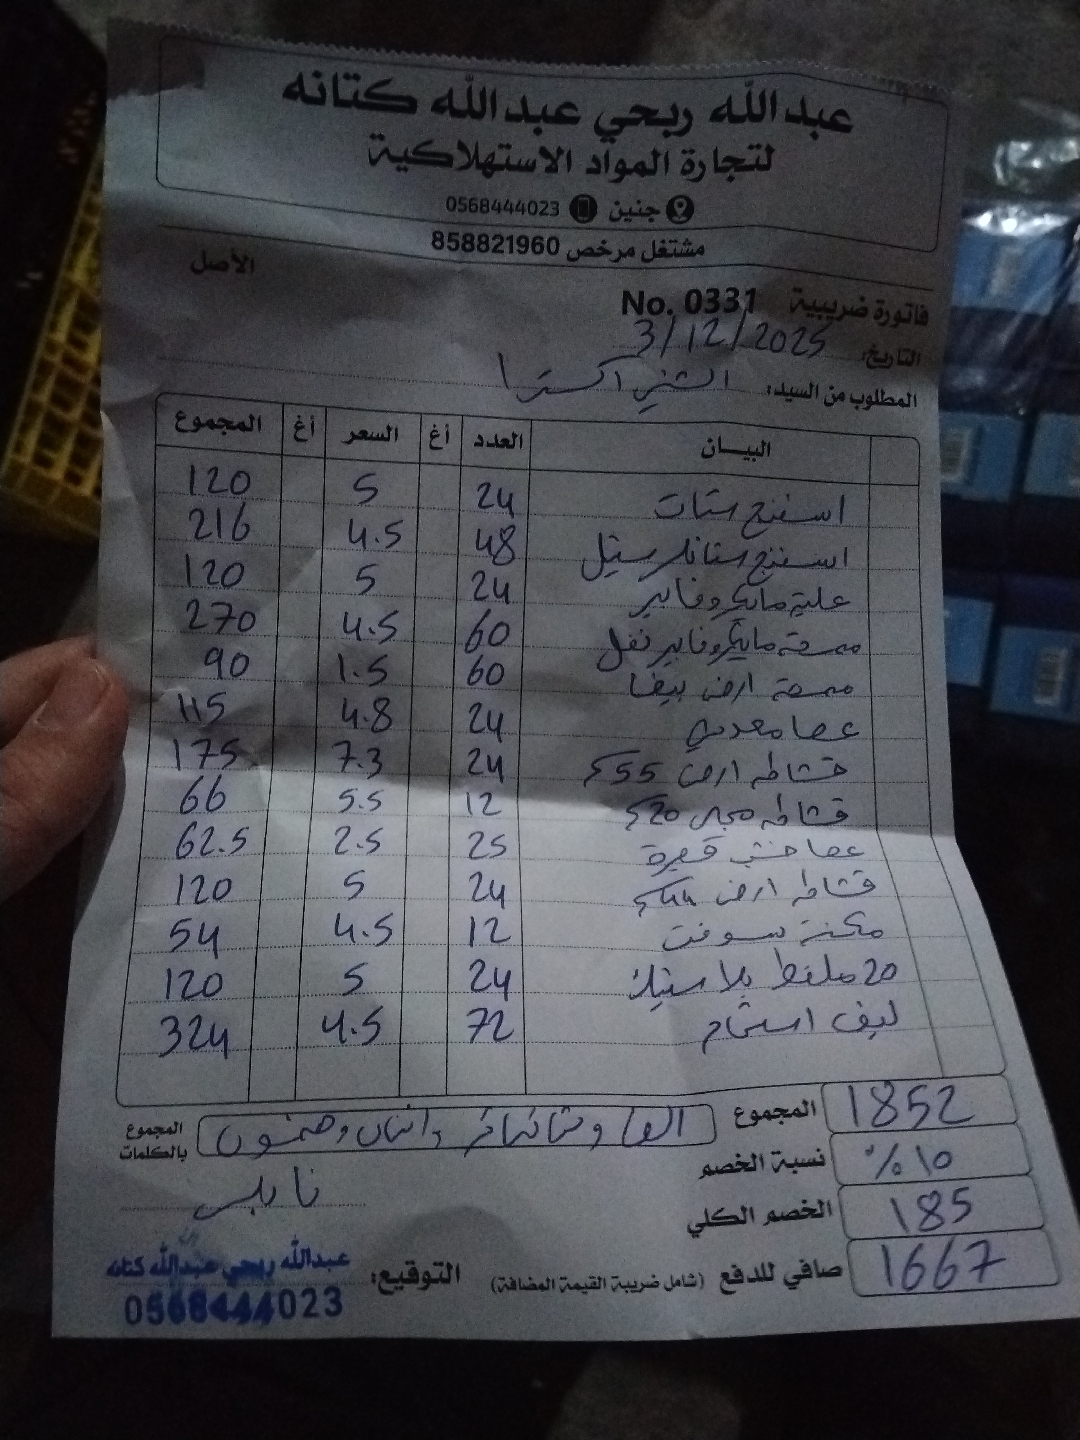 عبدالله ربحي عبدالله كتانه
لتجارة المواد الاستهلاكية
جنين 0568444023
مشتغل مرخص 858821960
الأصل
فاتورة ضريبية No. 0331
التاريخ: 3/12/2025
المطلوب من السيد: الشني اكسترا
البيـــان العدد أغ السعر أغ المجموع
اسفنج ستات 24 5 120
اسفنج ستانلس ستيل 48 4.5 216
علبة مايكروفايبر 24 5 120
ممسحة مايكروفايبر نفل 60 4.5 270
ممسحة ارض بيضا 60 1.5 90
عصا معدني 24 4.8 115
قشاطه ارض 55 24 7.3 175
قشاطه مجلى 20 12 5.5 66
عصا خشب قصيرة 25 2.5 62.5
قشاطه ارض 44 24 5 120
مكنسة سوفت 12 4.5 54
20 ملقط بلاستيك 24 5 120
ليف استحمام 72 4.5 324
المجموع 1852
المجموع بالكلمات الفا وثمانمائة واثنان وخمسون
نسبة الخصم 10%
نابلس
الخصم الكلي 185
صافي للدفع (شامل ضريبة القيمة المضافة) 1667
التوقيع: عبدالله ربحي عبدالله كتانه
0568444023